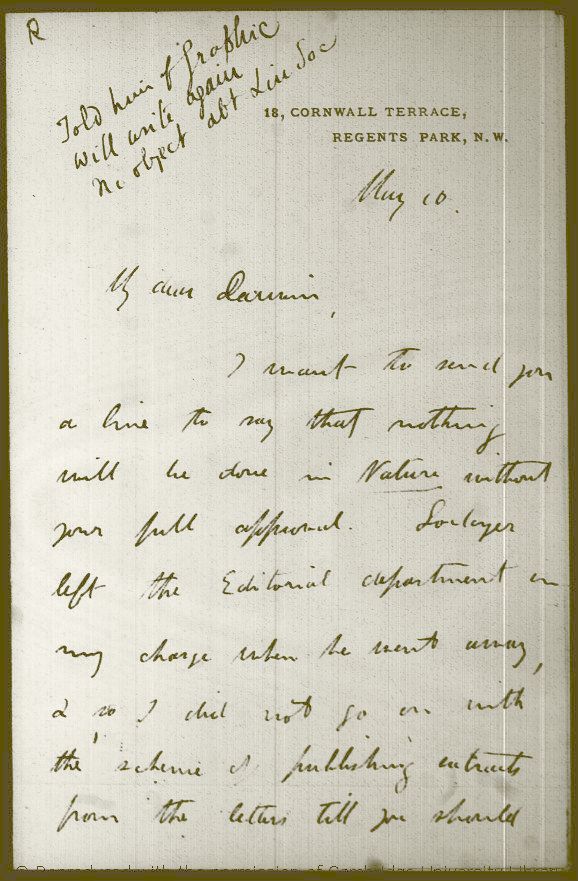 R
Told him of Graphic
will write again
No object abt Lin Soc
18, CORNWALL TERRACE,
REGENTS PARK, N.W.
May 10.
My dear Darwin,
I want to send you
a line to say that nothing
will be done in Nature without
your full approval. Lockyer
left the Editorial department in
my charge when he went away,
& so I did not go on with
the scheme of publishing extracts
from the letters till you should
© Reproduced with the permission of Cambridge University Library